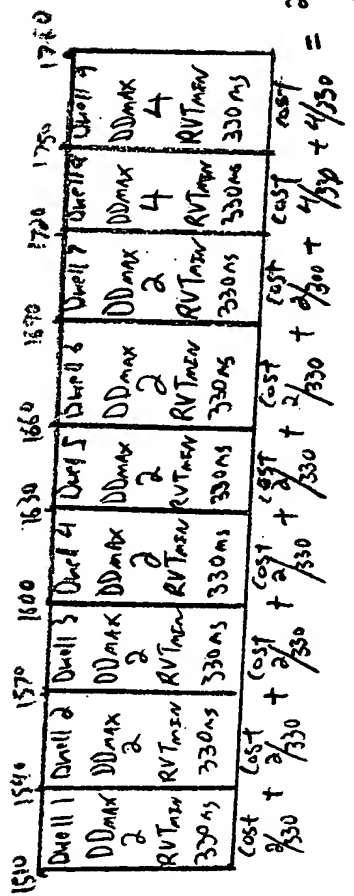 1510 1540 1570 1600 1630 1660 1690 1720 1750 1780
Dwell 1 Dwell 2 Dwell 3 Dwell 4 Dwell 5 Dwell 6 Dwell 7 Dwell 8 Dwell 9
DDMAX DDMAX DDMAX DDMAX DDMAX DDMAX DDMAX DDMAX DDMAX
2 2 2 2 2 2 2 4 4
RVTMIN RVTMIN RVTMIN RVTMIN RVTMIN RVTMIN RVTMIN RVTMIN RVTMIN
330ms 330ms 330ms 330ms 330ms 330ms 330ms 330ms 330ms
Cost Cost Cost Cost Cost Cost Cost Cost Cost
2/330 + 2/330 + 2/330 + 2/330 + 2/330 + 2/330 + 2/300 + 4/330 + 4/330 =